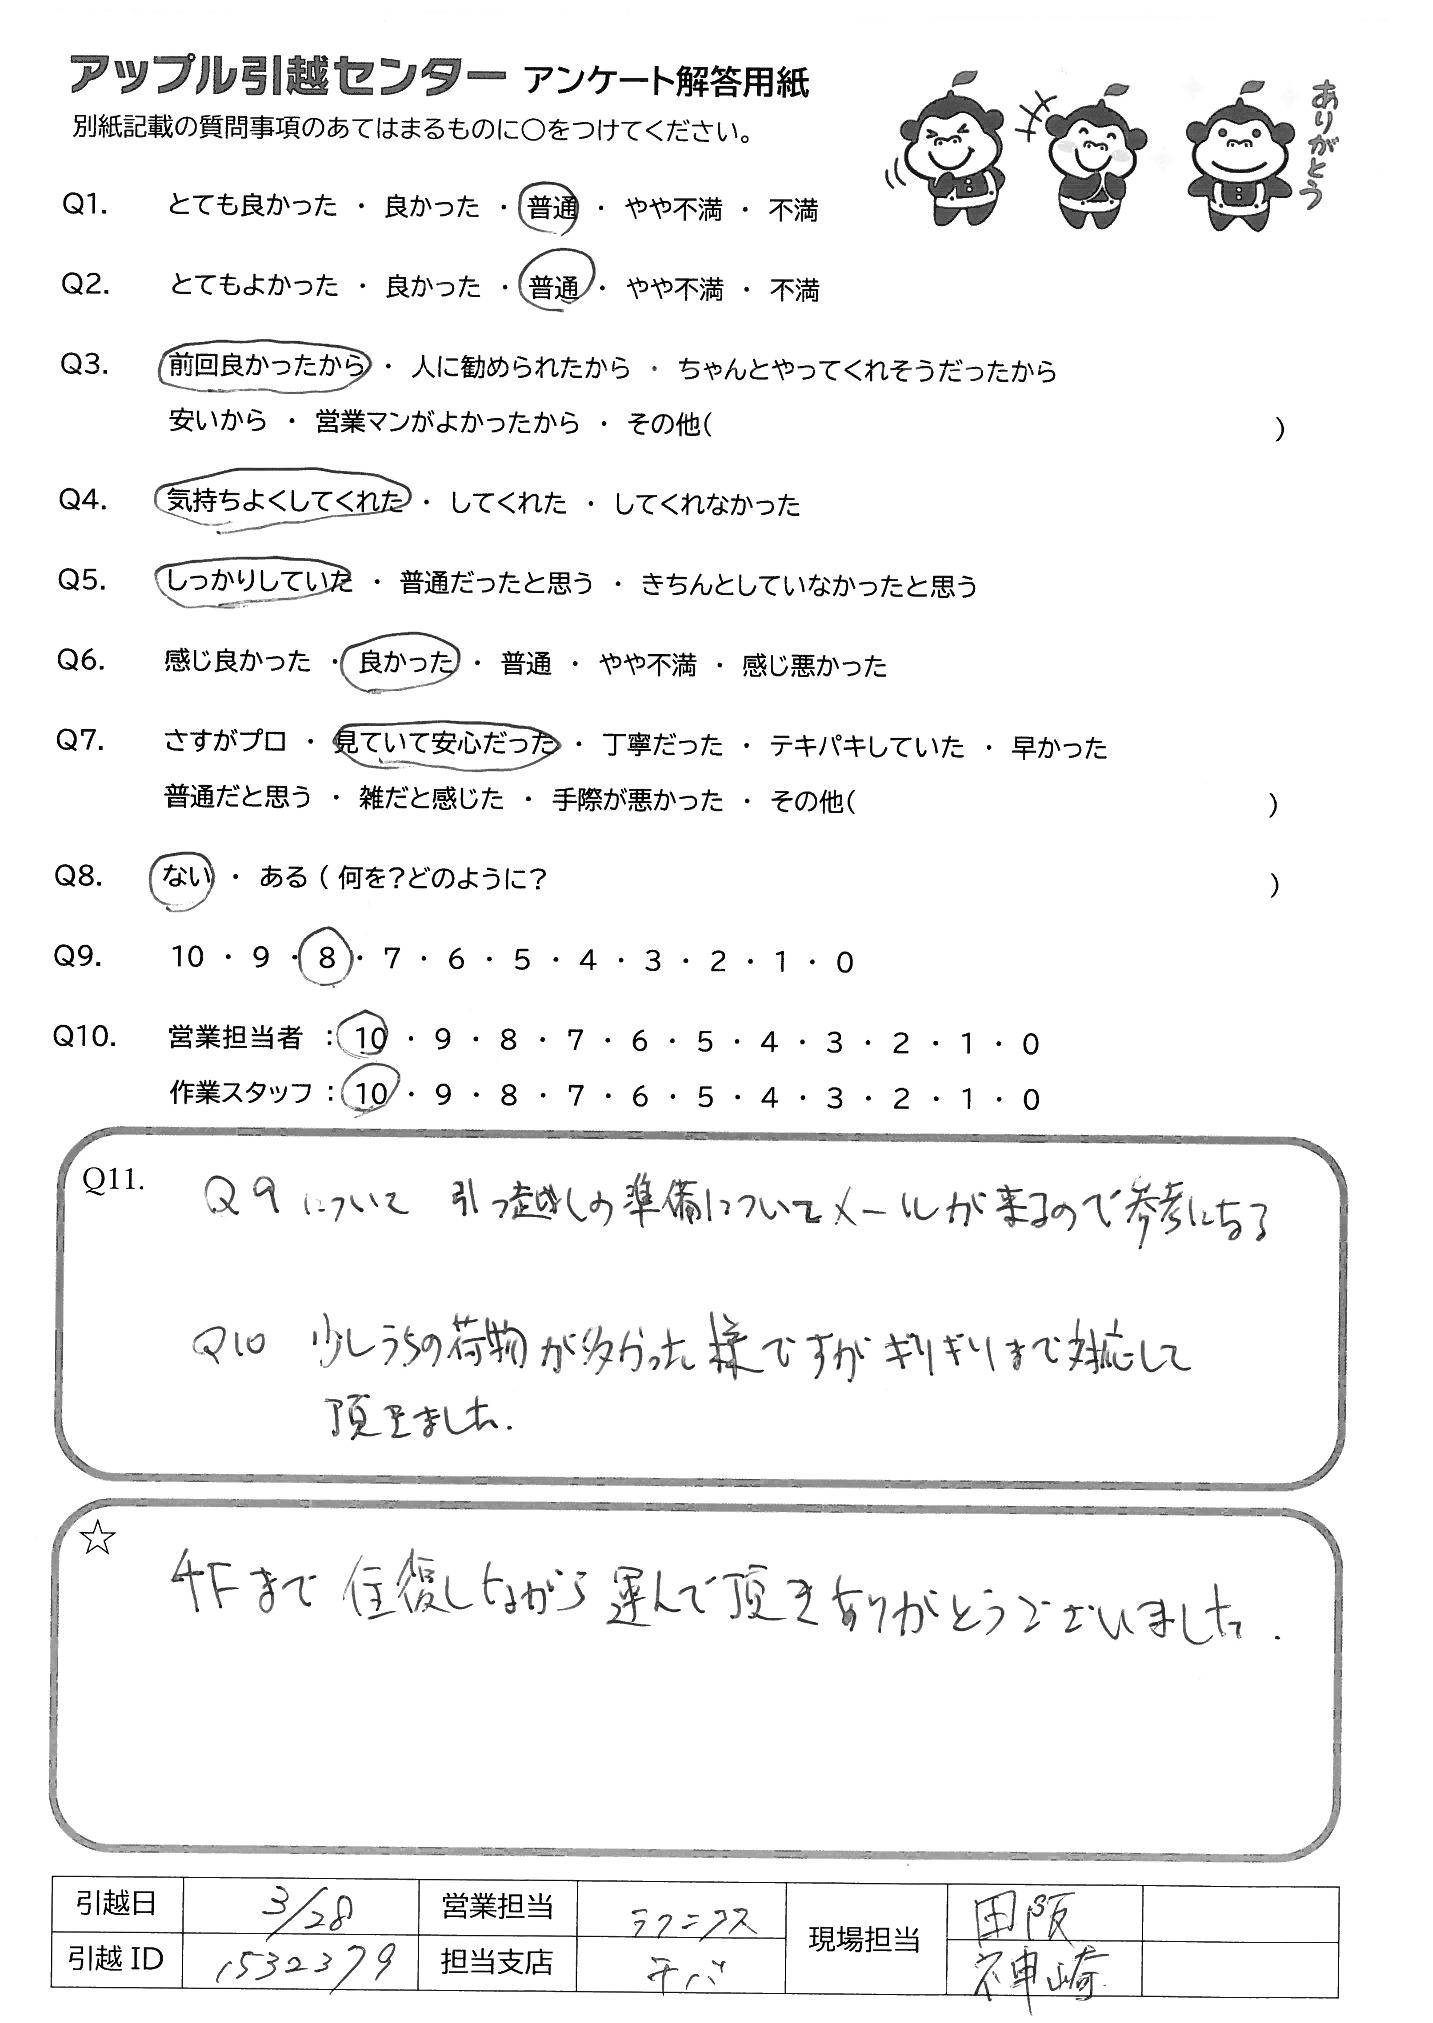 アップル引越センター アンケート解答用紙
別紙記載の質問事項のあてはまるものに○をつけてください。
ありがとう
Q1. とても良かった ・ 良かった ・ 普通 ・ やや不満 ・ 不満
Q2. とてもよかった ・ 良かった ・ 普通 ・ やや不満 ・ 不満
Q3. 前回良かったから ・ 人に勧められたから ・ ちゃんとやってくれそうだったから
安いから ・ 営業マンがよかったから ・ その他( )
Q4. 気持ちよくしてくれた ・ してくれた ・ してくれなかった
Q5. しっかりしていた ・ 普通だったと思う ・ きちんとしていなかったと思う
Q6. 感じ良かった ・ 良かった ・ 普通 ・ やや不満 ・ 感じ悪かった
Q7. さすがプロ ・ 見ていて安心だった ・ 丁寧だった ・ テキパキしていた ・ 早かった
普通だと思う ・ 雑だと感じた ・ 手際が悪かった ・ その他( )
Q8. ない ・ ある ( 何を?どのように? )
Q9. 10 ・ 9 ・ 8 ・ 7 ・ 6 ・ 5 ・ 4 ・ 3 ・ 2 ・ 1 ・ 0
Q10. 営業担当者 : 10 ・ 9 ・ 8 ・ 7 ・ 6 ・ 5 ・ 4 ・ 3 ・ 2 ・ 1 ・ 0
作業スタッフ : 10 ・ 9 ・ 8 ・ 7 ・ 6 ・ 5 ・ 4 ・ 3 ・ 2 ・ 1 ・ 0
Q11. Q9について 引っ越しの準備についてメールが来るので参考になる
Q10 少しうちの荷物が多かった様ですがギリギリまで対応して
頂きました.
☆
4Fまで 往復しながら 運んで頂きありがとうございました.
引越日 3/28 営業担当 ラクニクス 現場担当 田阪
引越ID 1532379 担当支店 千バ 神崎